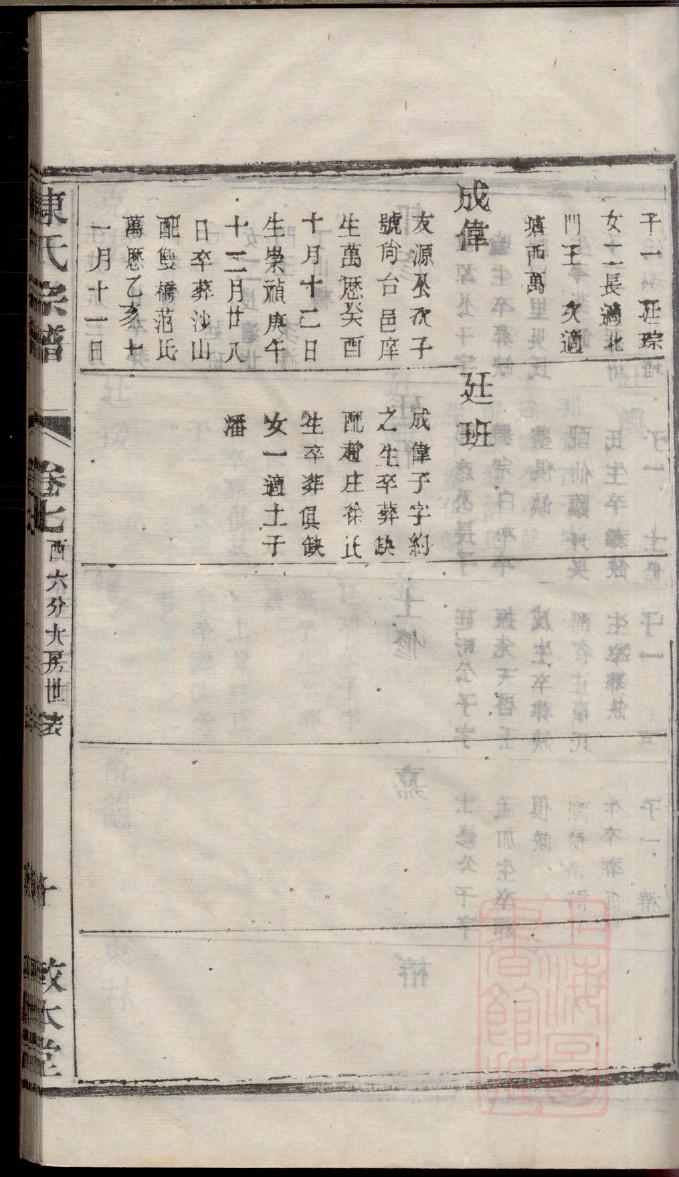 子一廷琮
女二長適北
門王次適
塘西萬
成偉
友源公次子
號尙台邑庠
生萬厯癸酉
十月十二日
生崇禎庚午
十二月廿八
日卒葬沙山
配雙橋范氏
萬厯乙亥七
一月十一日
廷班
成偉子字約
之生卒葬缺
配趙庄徐氏
生卒葬俱缺
女一適土于
潘
陳氏宗譜
卷七
酉六分大房世表
敦本堂
上海圖書館藏